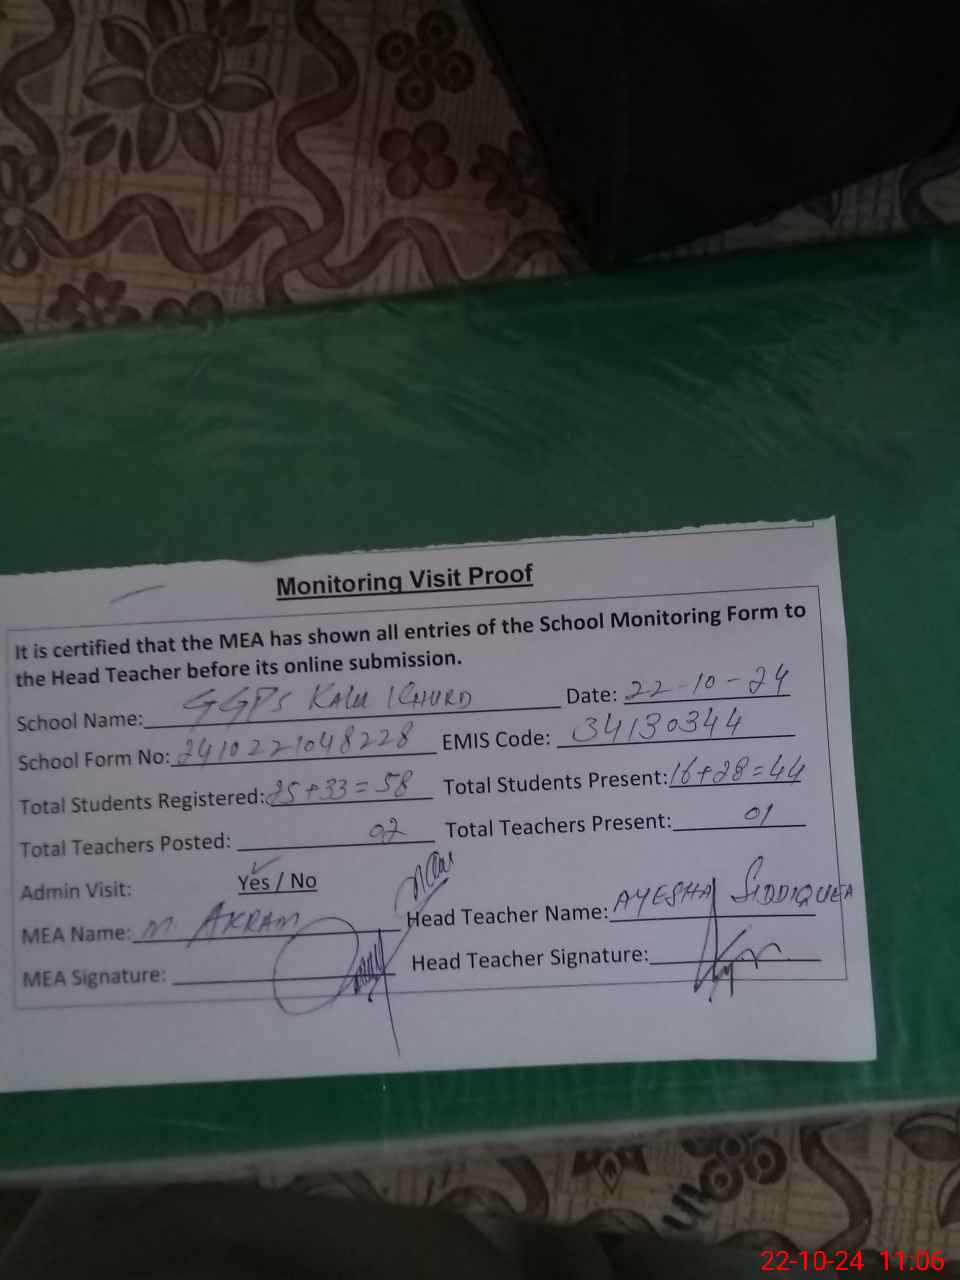 Monitoring Visit Proof
It is certified that the MEA has shown all entries of the School Monitoring Form to
the Head Teacher before its online submission.
School Name: GGPS KALU KHURD Date: 22-10-24
School Form No: 2410221048228 EMIS Code: 34130344
Total Students Registered: 25+33=58 Total Students Present: 16+28=44
Total Teachers Posted: 02 Total Teachers Present: 01
Admin Visit: Yes / No
MEA Name: M. AKRAM Head Teacher Name: AYESHA SIDDIQUEA
MEA Signature: Head Teacher Signature:
22-10-24 11:06